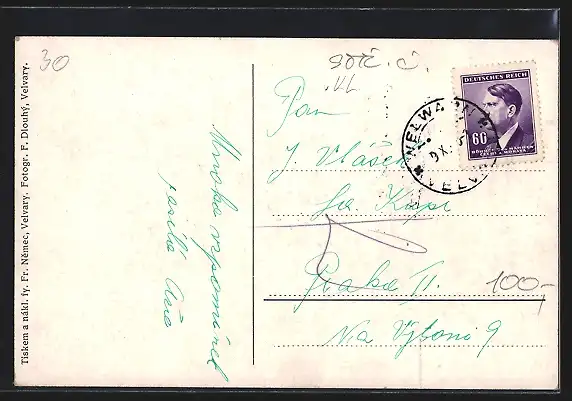 30
Tiskem a nákl. fy. Fr. Němec, Velvary. Fotogr. F. Dlouhý, Velvary.
Mnoho vzpomínek
posílá
VL
Pan
J. Vlášek
Praha II.
Na Výtoni 9
100,-
DEUTSCHES REICH
60
BÖHMEN UND MÄHREN
ČECHY A MORAVA
WELWARN
VELV